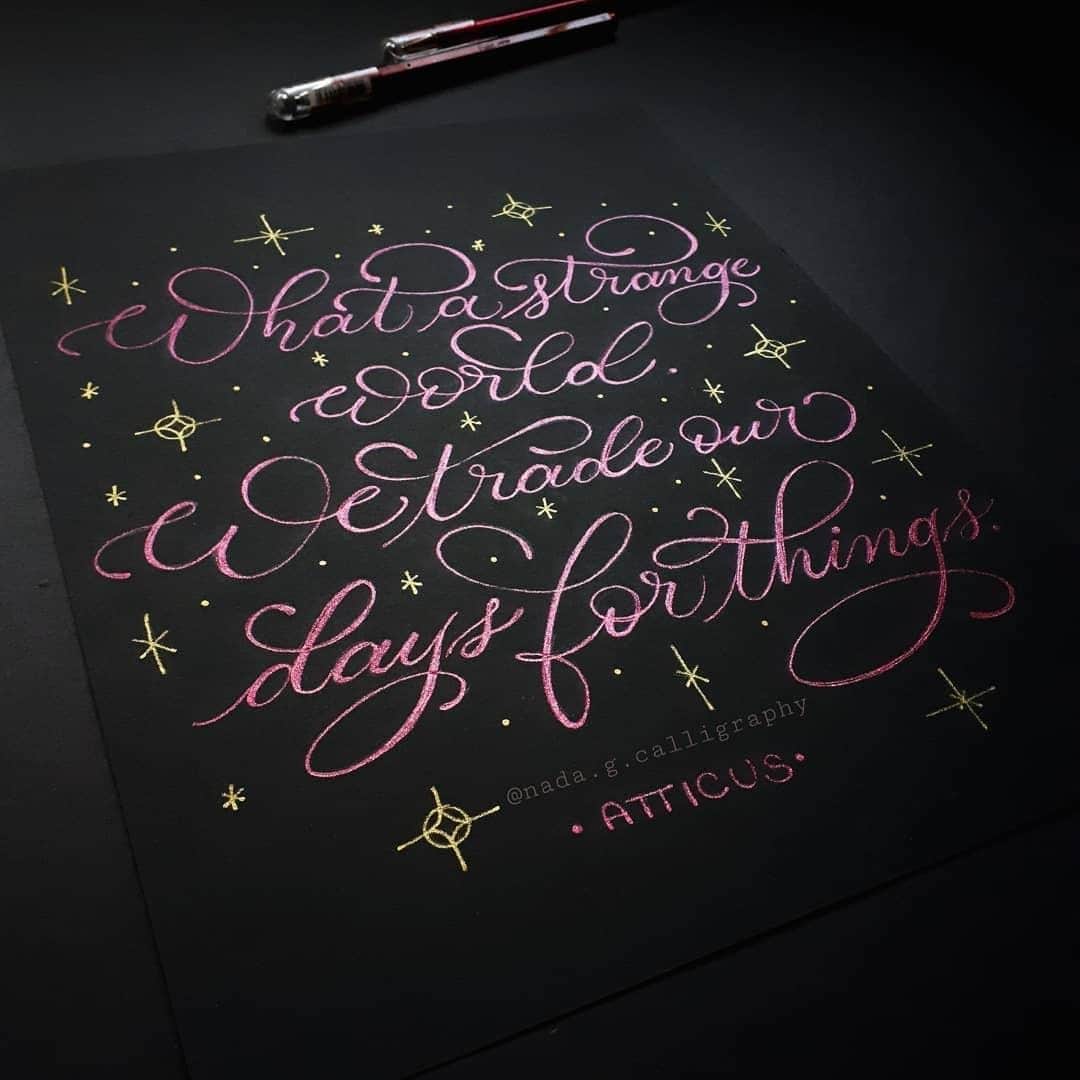 What a strange
world.
We trade our
days for things.
@nada.g.calligraphy
• ATTICUS •